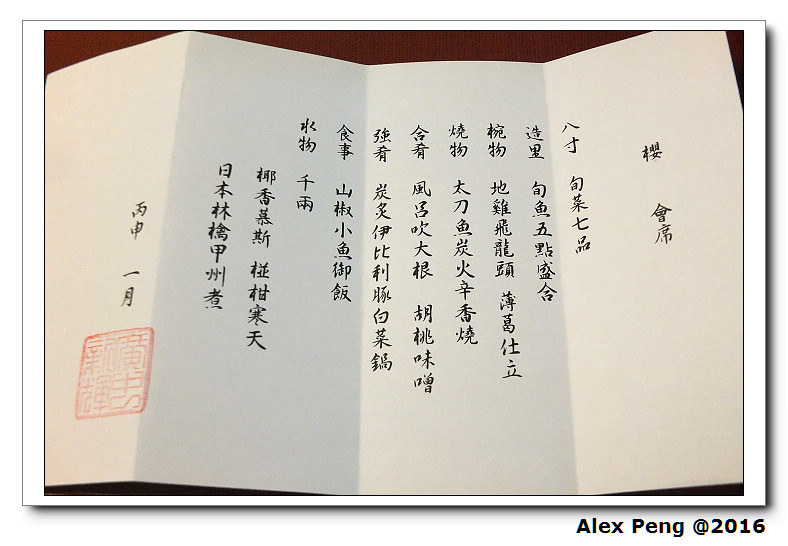 櫻 會席
八寸 旬菜七品
造里 旬魚五點盛合
椀物 地雞飛龍頭 薄葛仕立
燒物 太刀魚炭火辛香燒
合肴 風呂吹大根 胡桃味噌
強肴 炭炙伊比利豚白菜鍋
食事 山椒小魚御飯
水物 千兩
椰香慕斯 椪柑寒天
日本林檎甲州煮
丙申 一月
Alex Peng @2016